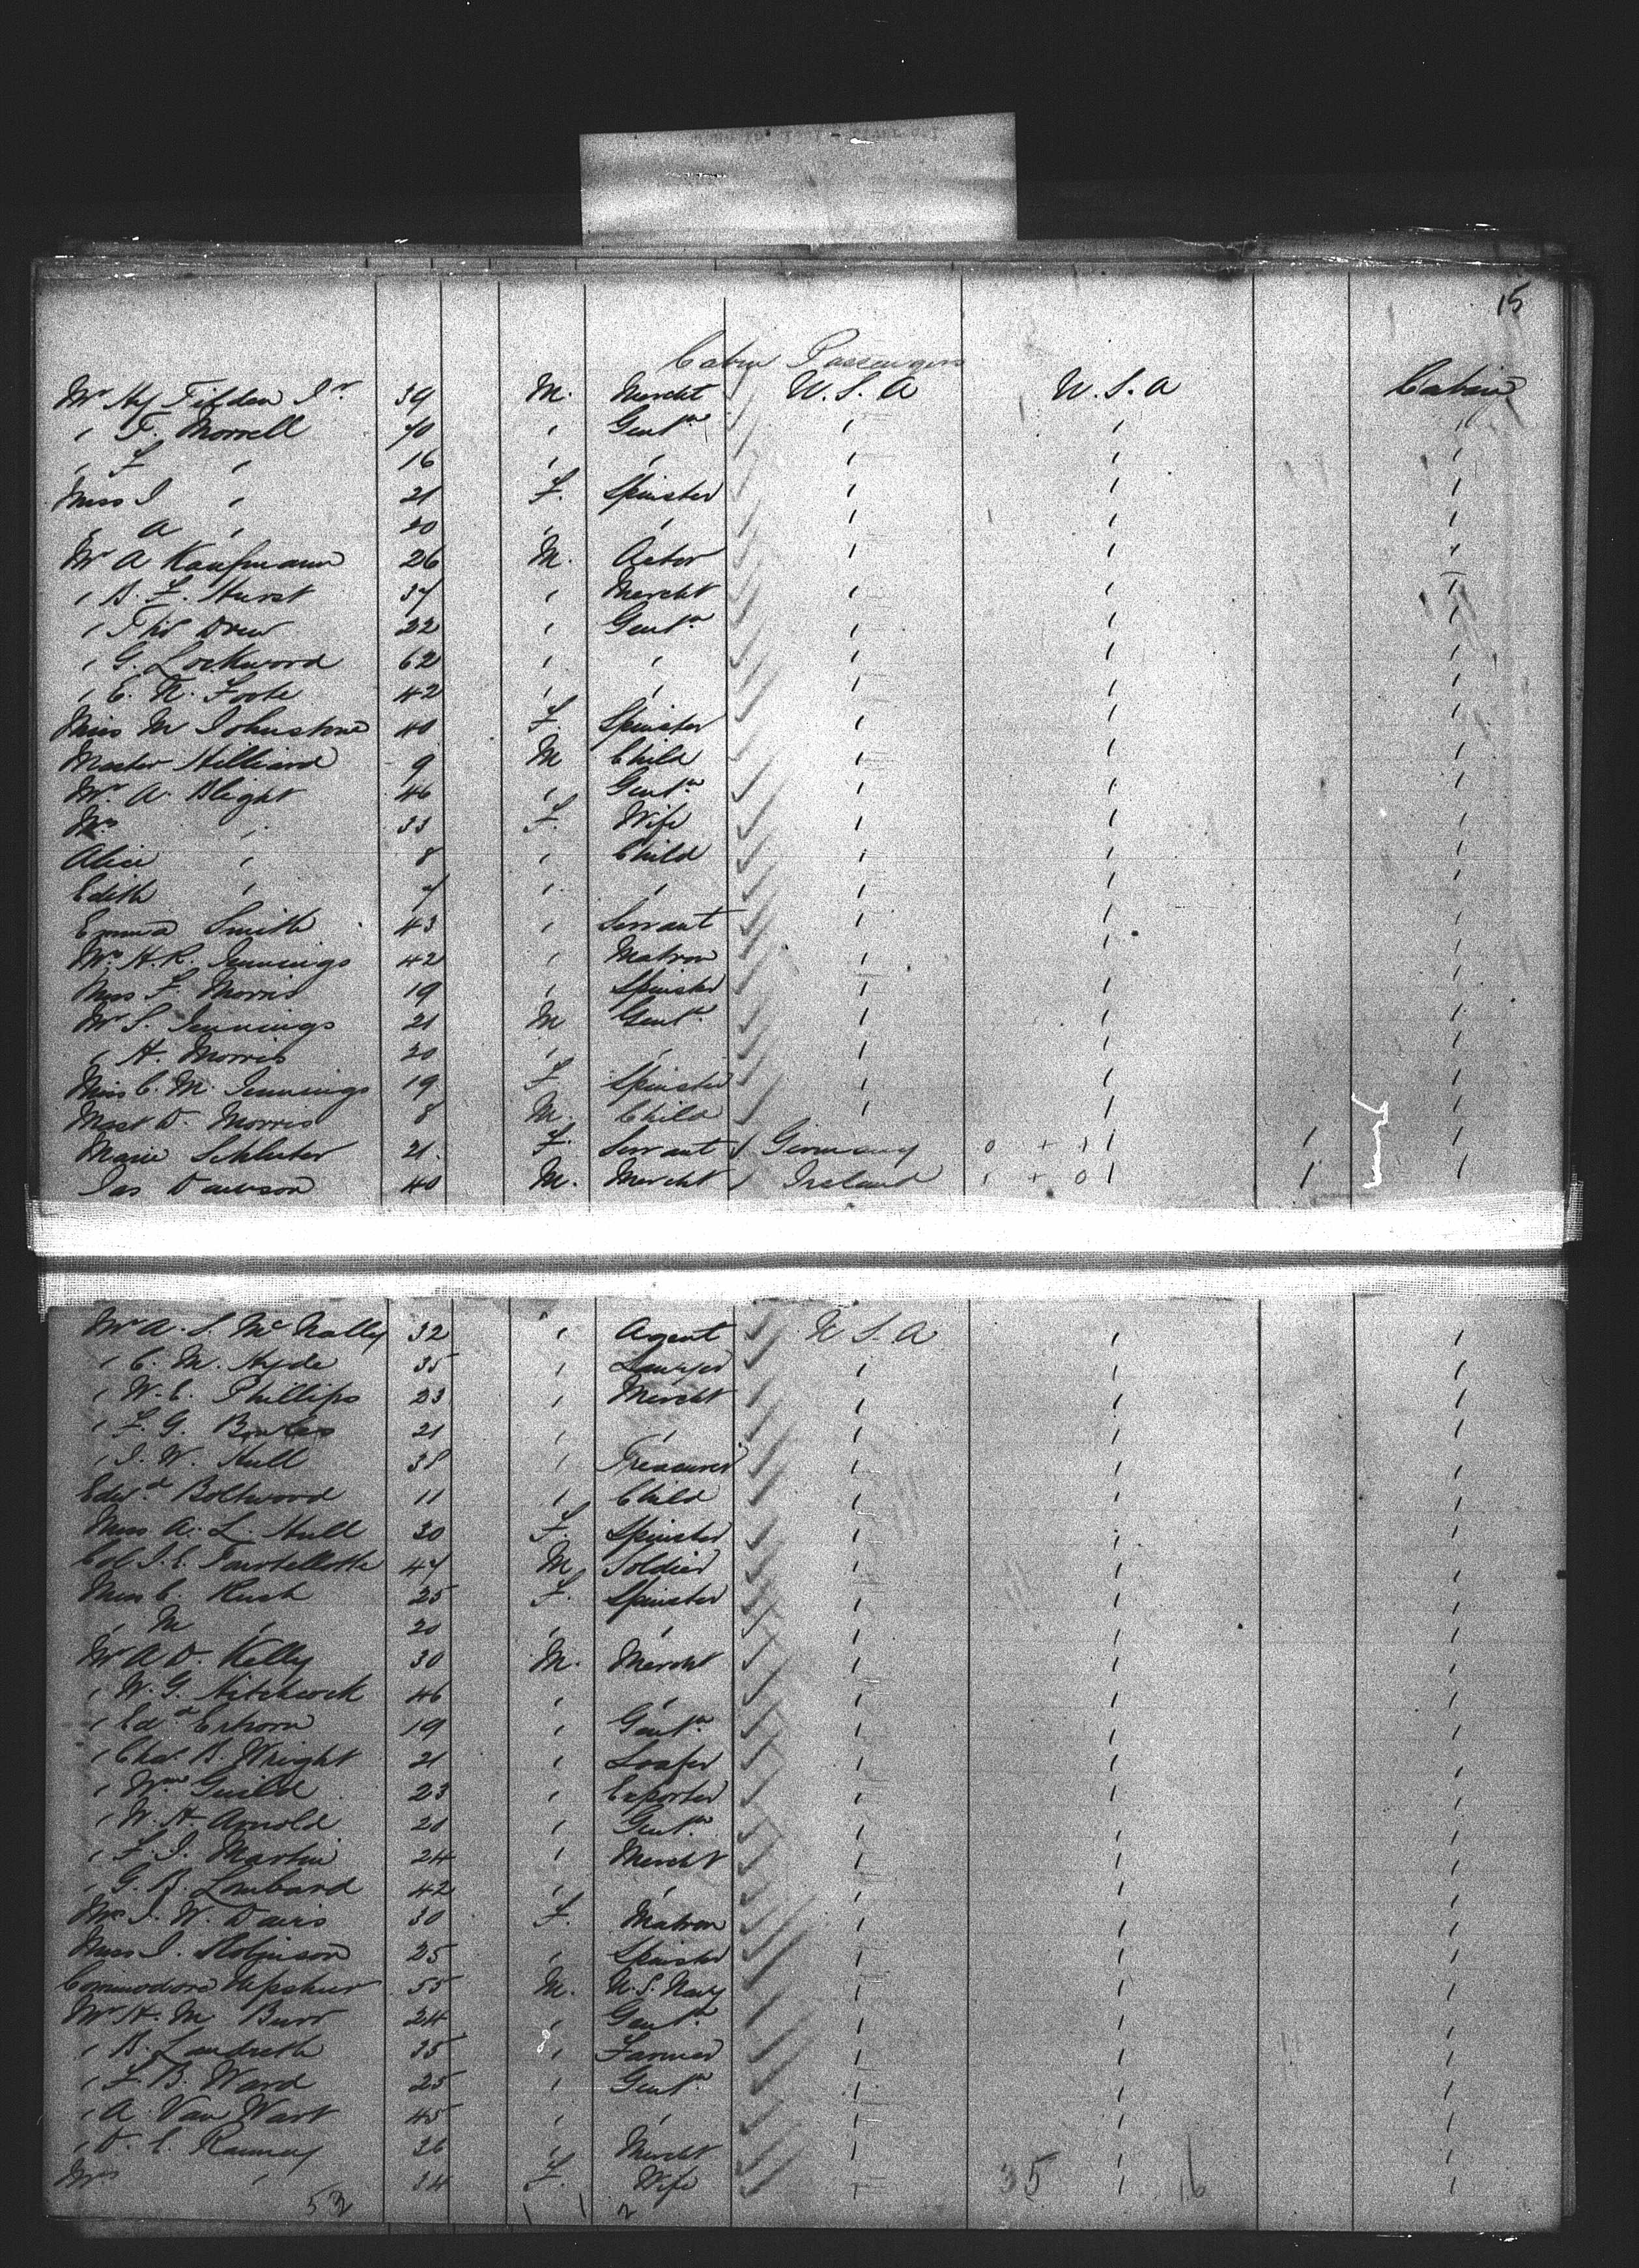 15
Cabin Passengers
Mr Hy Tilden Jr. 39 M. Mercht U.S.A U.S.A Cabin
" F. Morrell 40 " Gentn " " "
" F " 16 " " " " "
Miss J " 21 F. Spinster " " "
" A " 20 " " " " "
Mr A Kaufmann 26 M. Actor " " "
" B. F. Hurst 37 " Mercht " " "
" Drew 22 " Gentn " " "
" G. Lockwood 62 " " " " "
" E. R. Foote 42 " " " " "
Miss M Johnstone 40 F. Spinster " " "
Master Hilliard 9 M Child " " "
Mr. A. Blight 46 " Gentn " " "
Mrs " 33 F. Wife " " "
Alice " 8 " Child " " "
Edith " 7 " " " " "
Emma Smith 43 " Servant " " "
Mrs H.R. Jennings 42 " Matron " " "
Miss F. Morris 19 " Spinster " " "
Mr S. Jennings 21 M Gentn " " "
" H. Morris 20 " " " " "
Miss C. M. Jennings 19 F. Spinster " " "
Mast D. Morris 8 M. Child " " "
Marie Schluter 21 F. Servant Germany 0 + 1 " 1 "
Jas Dawson 40 M. Mercht Ireland 1 + 0 " 1 "
Mr A. S. McNally 32 " Agent U.S.A " "
" C. M. Hyde 35 " Lawyer " " "
" W. C. Phillips 23 " Mercht " " "
" F. G. Bowles 21 " " " " "
" J. W. Hull 38 " Treasurer " " "
Edwd Boltwood 11 " Child " " "
Miss A. L. Hull 30 F. Spinster " " "
Col J. E. Tourtellotte 47 M Soldier " " "
Miss C. Rush 25 F. Spinster " " "
" M " 20 " " " " "
Mr A D. Kelly 30 M. Mercht " " "
" W. G. Hitchcock 46 " " " " "
" Edd 19 " Gentn " " "
" Chas. B. Wright 21 " Loafer " " "
" Wm Guild 23 " Exporter " " "
" W. H. Arnold 21 " Gentn " " "
" F. J. Martin 24 " Mercht " " "
" G. B. Lombard 42 " " " " "
Mrs J. W. Davis 30 F. Matron " " "
Miss J. Robinson 25 " Spinster " " "
Commodore Upshur 55 M. U.S. Navy " " "
Mr H. M. Burr 24 " Gentn " " "
" B. Landreth 35 " Farmer " " "
" F. B. Ward 25 " Gentn " " "
" A. Van Wart 45 " " " " "
" D. C. Ramsay 36 " Mercht " " "
Mrs " 34 F. Wife " 35 " 16 "
53 1 1 2